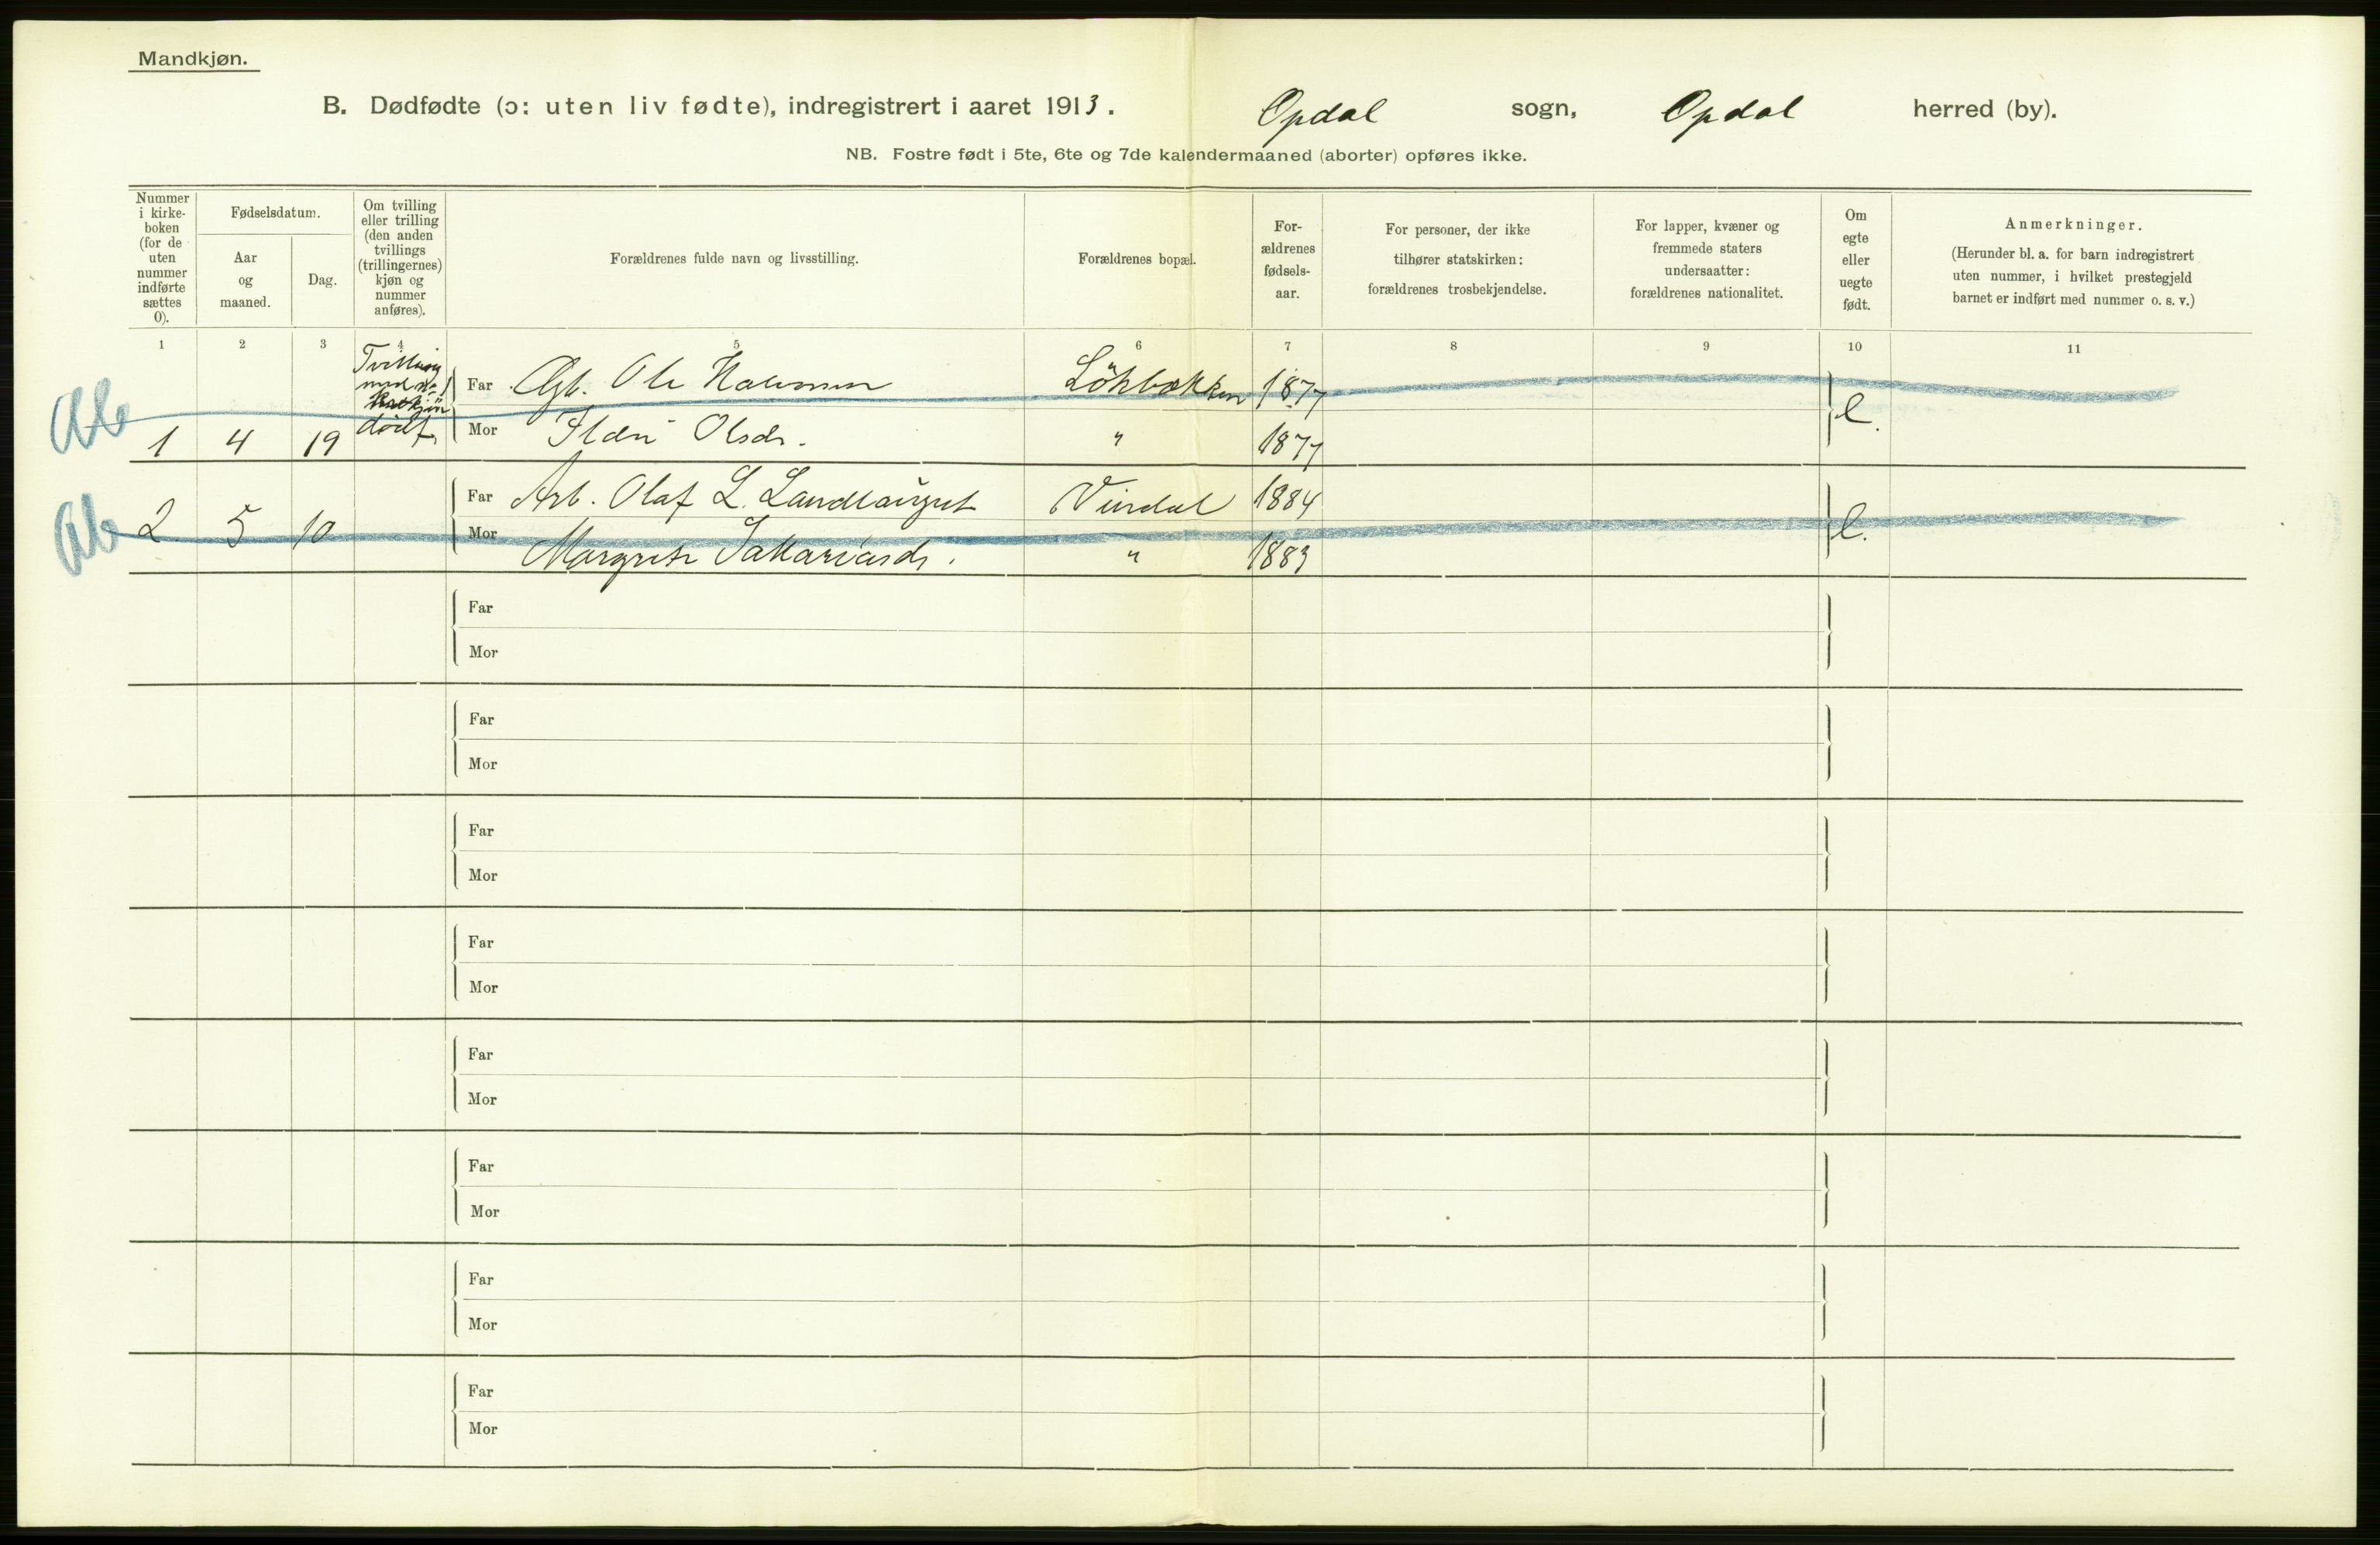 Mandkjøn.
B. Dødfødte (ɔ: uten liv fødte), indregistrert i aaret 1913. Opdal sogn, Opdal herred (by).
NB. Fostre født i 5te, 6te og 7de kalendermaaned (aborter) opføres ikke.
Nummer
i kirke-
boken
(for de
uten
nummer
indførte
sættes
0).
Fødselsdatum.
Aar
og
maaned.
Dag.
Om tvilling
eller trilling
(den anden
tvillings
(trillingernes)
kjøn og
nummer
anføres).
Forældrenes fulde navn og livsstilling.
Forældrenes bopæl.
For-
ældrenes
fødsels-
aar.
For personer, der ikke
tilhører statskirken:
forældrenes trosbekjendelse.
For lapper, kvæner og
fremmede staters
undersaatter:
forældrenes nationalitet.
Om
egte
eller
uegte
født.
Anmerkninger.
(Herunder bl. a. for barn indregistrert
uten nummer, i hvilket prestegjeld
barnet er indført med nummer o. s. v.)
1 2 3 4 5 6 7 8 9 10 11
Tvilling
med
Far Ole Løkbækken 1877
1 4 19 Mor Ildri Olsdr. " 1877 e.
Far Arb. Olaf L. Vindal 1884
2 5 10 Mor Margrete " 1883 e.
Far
Mor
Far
Mor
Far
Mor
Far
Mor
Far
Mor
Far
Mor
Far
Mor
Far
Mor